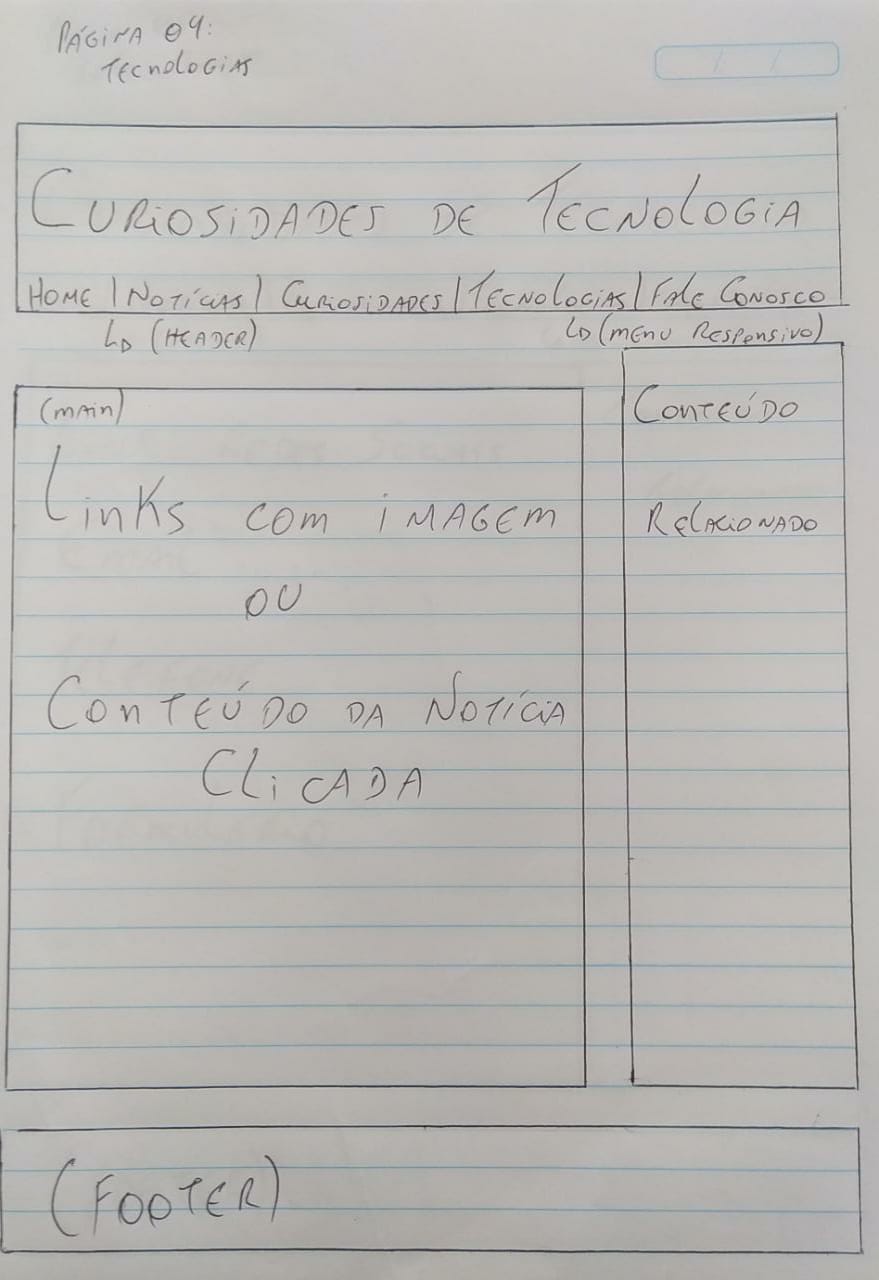 PÁGINA 04:
TECNOLOGIAS
CURIOSIDADES DE TECNOLOGIA
HOME | NOTÍCIAS | CURIOSIDADES | TECNOLOGIAS | FALE CONOSCO
(HEADER)
(MENU RESPONSIVO)
(MAIN)
LINKS COM IMAGEM
OU
CONTEÚDO DA NOTÍCIA
CLICADA
CONTEÚDO
RELACIONADO
(FOOTER)